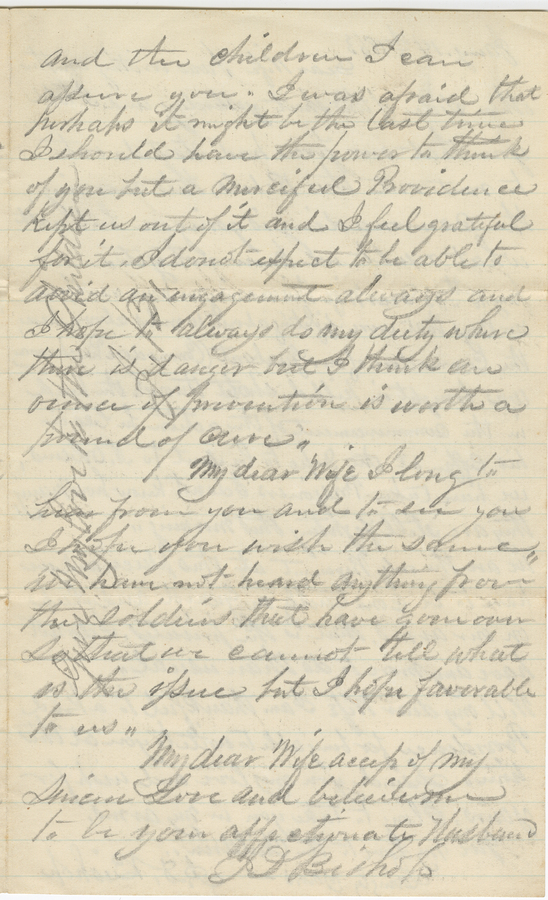 and the children I can
assure you. I was afraid that
perhaps it might be the last time
I should have the power to think
of you but a merciful Providence
kept us out of it and I feel grateful
for it. I do not expect to be able to
avoid an engagement always and
I hope to always do my duty where
there is danger but I think an
ounce of prevention is worth a
pound of cure"
My dear Wife I long to
hear from you and to see you
I hope you wish the same"
we have not heard anything from
the soldiers that have gone over
so that we cannot tell what
is the issue but I hope favorable
to us"
My dear Wife accep of my
sincere Love and believe me
to be your affectionate Husband
J D Bishop
my love to the